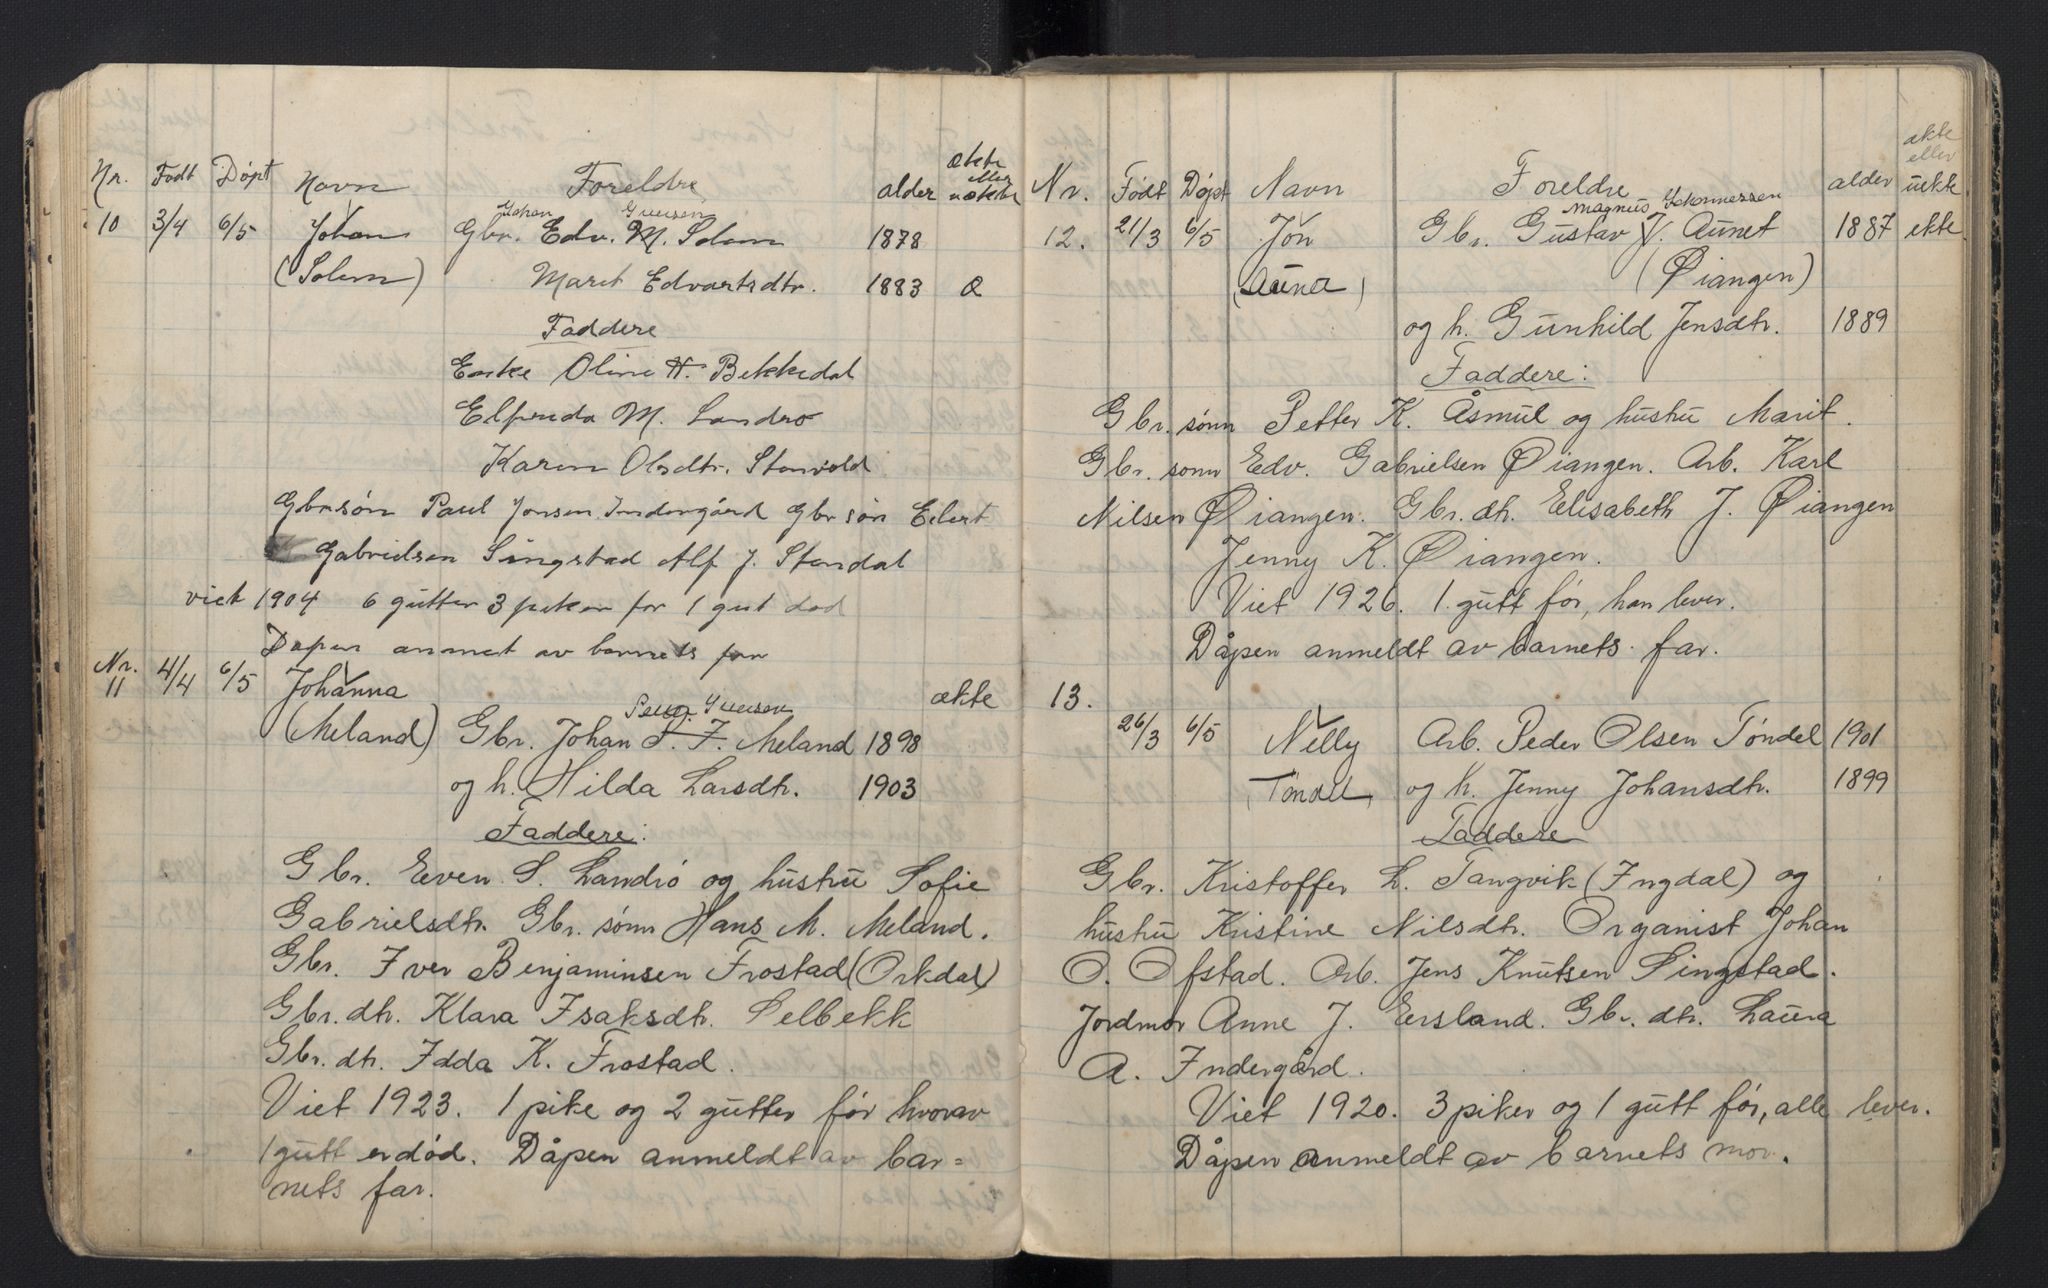 Nr. Født Døpt Navn Foreldre alder ekte eller uekte
Johan Iversen
10 3/4 6/5 Johan Gbr. Edv. M. Solem 1878
(Solem) Marit Edvartsdtr. 1883 Æ
Faddere
Enke Oline H. Bekkedal
Elfrida M. Landrø
Karen Olsdtr. Stenvold
Gbrsøn Paul Jonsen Indergård Gbr søn Eilert
Gabrielsen Singstad Alf J. Stendal
viet 1904 6 gutter 3 piker før 1 gut død
Dåpen anmet av barnets far
Nr. 11 4/4 6/5 Johanna ekte
Iversen
(Meland) Gbr. Johan P. I. Meland 1898
og h. Hilda Larsdtr. 1903
Faddere:
Gbr. Even S. Landrø og hustru Sofie
Gabrielsdtr. Gbr. sønn Hans M. Meland.
Gbr. Iver Benjaminsen Frostad (Orkdal)
Gbr. dtr. Klara Isaksdtr. Selbekk
Gbr. dtr. Idda K. Frostad.
Viet 1923. 1 pike og 2 gutter før hvorav
1 gutt er død. Dåpen anmeldt av bar=
nets far.
Nr. Født Døpt Navn Foreldre alder ekte eller uekte
Magnus Iskonnessen
12. 21/3 6/5 Jon Gbr. Gustav J. Aunet 1887 ekte.
(Auna) (Øiangen)
og h. Gunhild Jensdtr. 1889
Faddere:
Gbr. sønn Petter K. Åsmul og hustru Marit.
Gbr. sønn Edv. Gabrielsen Øiangen. Arb. Karl
Nilsen Øiangen. Gbr. dtr. Elisabeth J. Øiangen
Jenny K. Øiangen.
Viet 1926. 1 gutt før, han lever.
Dåpen anmeldt av barnets far.
13.
26/3 6/5 Nelly Arb. Peder Olsen Tøndel 1901
(Tøndel) og h. Jenny Johansdtr. 1899
Faddere
Gbr. Kristoffer L. Tangvik (Ingdal) og
hustru Kristine Nilsdtr. Organist Johan
O. Ofstad. Arb. Jens Knutsen Singstad.
Jordmor Anne J. Eersland. Gbr. dtr. Laura
A. Indergård.
Viet 1920. 3 piker og 1 gutt før, alle lever.
Dåpen anmeldt av barnets mor.